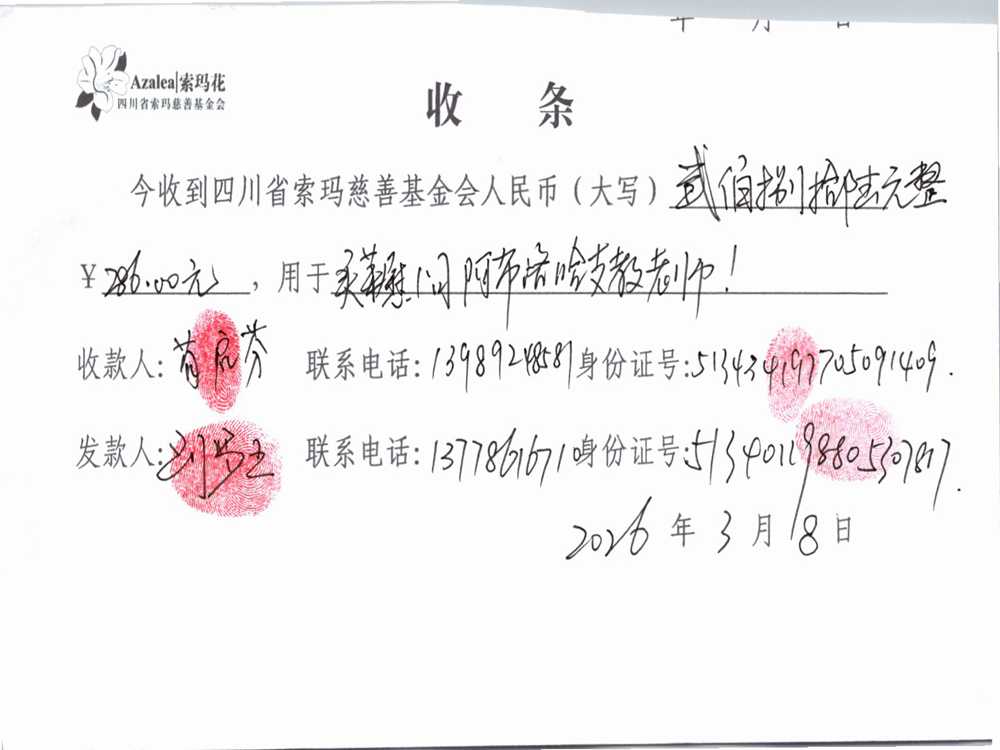 年 月 日
Azalea|索玛花
四川省索玛慈善基金会
收 条
今收到四川省索玛慈善基金会人民币（大写）贰佰捌拾陆元整
￥286.00元，用于买菜慰问阿布洛哈支教老师！
收款人: 芬 联系电话: 13989248587 身份证号: 513434197705091409.
发款人: 联系电话: 13778616710 身份证号: 513401198805307817.
2026 年 3 月 18 日